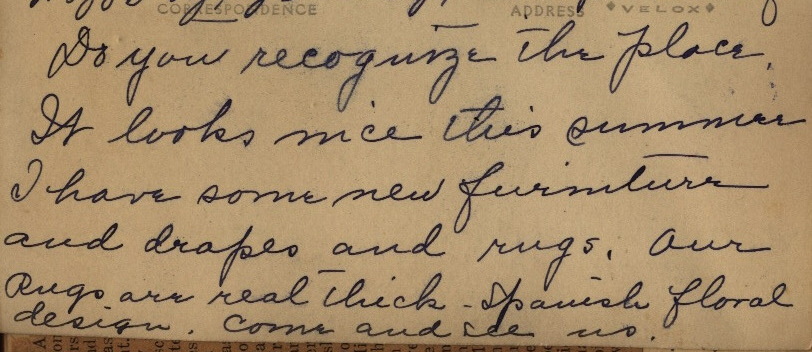 CORRESPONDENCE ADDRESS VELOX
Do you recognize the place.
It looks nice this summer
I have some new furniture
and drapes and rugs. Our
Rugs are real thick - Spanish floral
design. Come and see us.